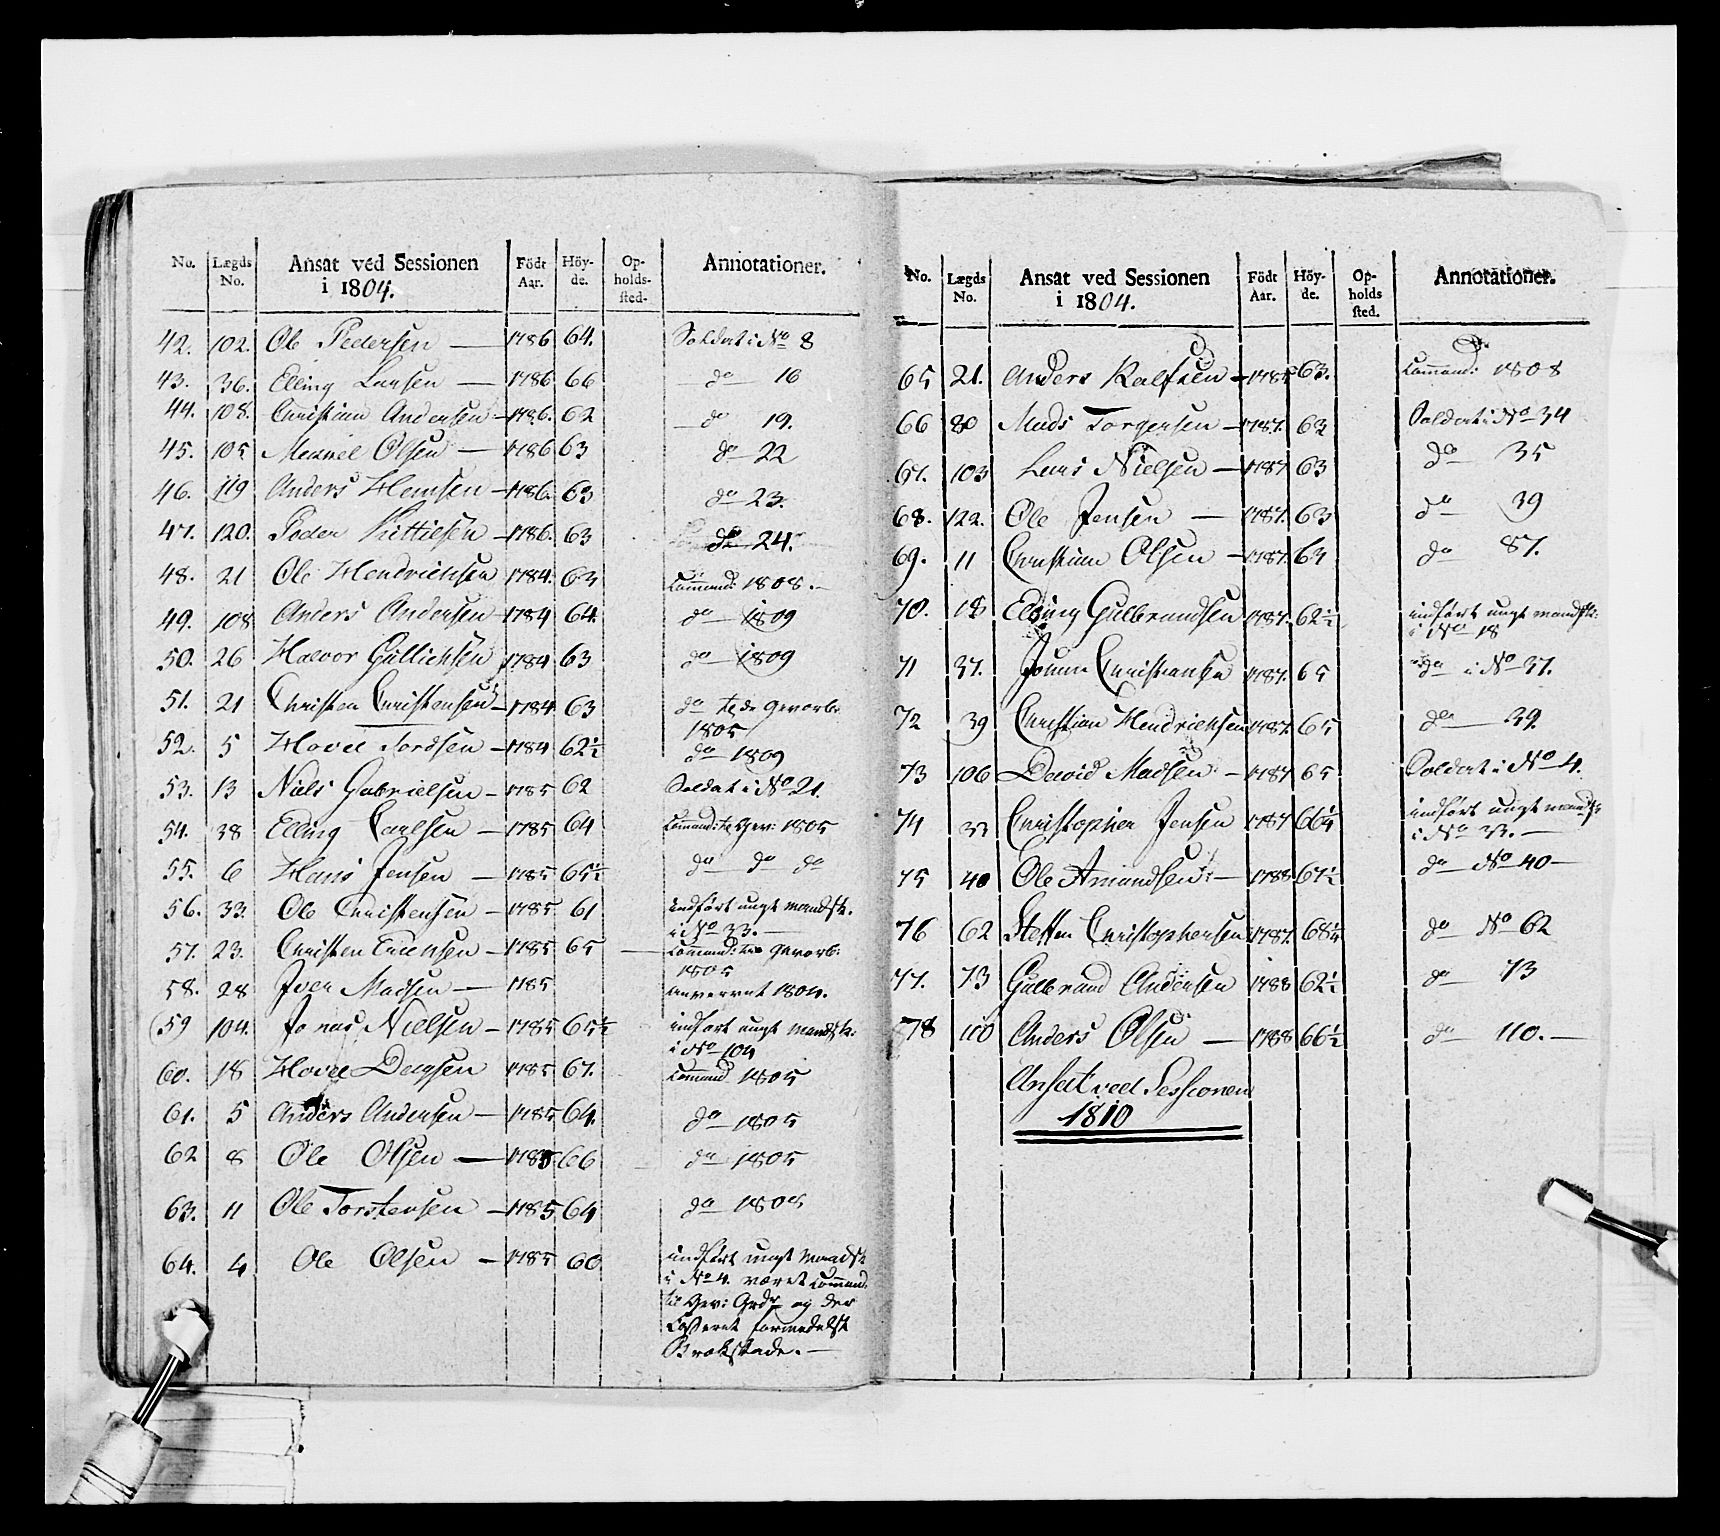 No. Lægds No. Ansat ved Sessionen i 1804. Födt Aar. Höyde. Opholds-sted. Annotationer.
42. 102. Ole Pedersen — 1786 64. Soldat i No 8
43. 36. Elling Larsen — 1786 66 do 16
44. 108. Christian Andersen — 1786. 62 do 19.
45. 105 Olsen — 1786 63 do 22
46. 119 Anders Hansen — 1786. 63 do 23.
47. 120. Peder Kittilsen — 1786. 63 do 24.
48. 21 Ole Hendrichsen 1784. 63 Command: 1808. —
49. 108 Anders Andersen — 1784 64. do 1809
50. 26 Halvor Gullichsen 1784 63 do 1809
51. 21 Christen Christensen — 1784 63 do Gevorb:
1805
52. 5 Hovel Tordsen — 1784 62½ do 1809
53. 13 Niels Gabrielsen — 1785 62 Soldat i No 21.
54. 38 Elling Carlsen — 1785 64 Command: til Gev: 1805
55. 6 Hans Jensen — 1785 65½ do do do
56. 33. Ole Christensen — 1785 61 indført ungt Mandsk.
i No 33. —
57. 23. Christen Erichsen — 1785 65 Command: til Gevorb:
1805
58. 28 Iver Madsen — 1785 1804.
59 104. Jonas Nielsen — 1785 65½ indført ungt Mandsk:
i No 104
60. 18 Hovel Dagsen 1785 67. Command 1805
61. 5 Anders Andersen — 1785 64. do 1805
62 8 Ole Olsen — 1785 66 do 1805
63. 11 Ole Torstensen — 1785 64 do 1808
64. 4 Ole Olsen — 1785 60 indført ungt Mandsk
i No 4. været Command:
til Gev: Grdr og der
Casseret formedelst
Brokskade. —
No. Lægds No. Ansat ved Sessionen i 1804. Födt Aar. Höyde. Opholds sted. Annotationer.
65 21. Anders Ralfsen — 1785 63. Command: 1808
66 80 Mads Torgersen — 1787. 63 Soldat i No 34
67. 103 Lars Nielsen — 1787 63 do 35
68. 122. Ole Jensen — 1787. 63 do 39
69. 11 Christian Olsen — 1787. 64 do 87.
70. 18 Elling Gulbrandsen 1787. 62½ indført ungt Mandsk:
i No 18
71 37. Christiansen 1787. 65 do i No 37.
72 39 Christian Hendrichsen 1787. 65 do 39.
73 106 David Madsen — 1787 65 Soldat i No 4.
74 33 Christopher Jensen 1787 66¼ indført ungt Mandsk
i No 33. —
75 40 Ole Amundsen — 1788 67½ do No 40 —
76 62 Steffen Christophersen 1787. 68¼ do No 62
77. 73 Gulbrand Andersen 1788 62½ do 73
78 110 Anders Olsen — 1788 66½ do 110. —
Ansat ved Sessionen
1810